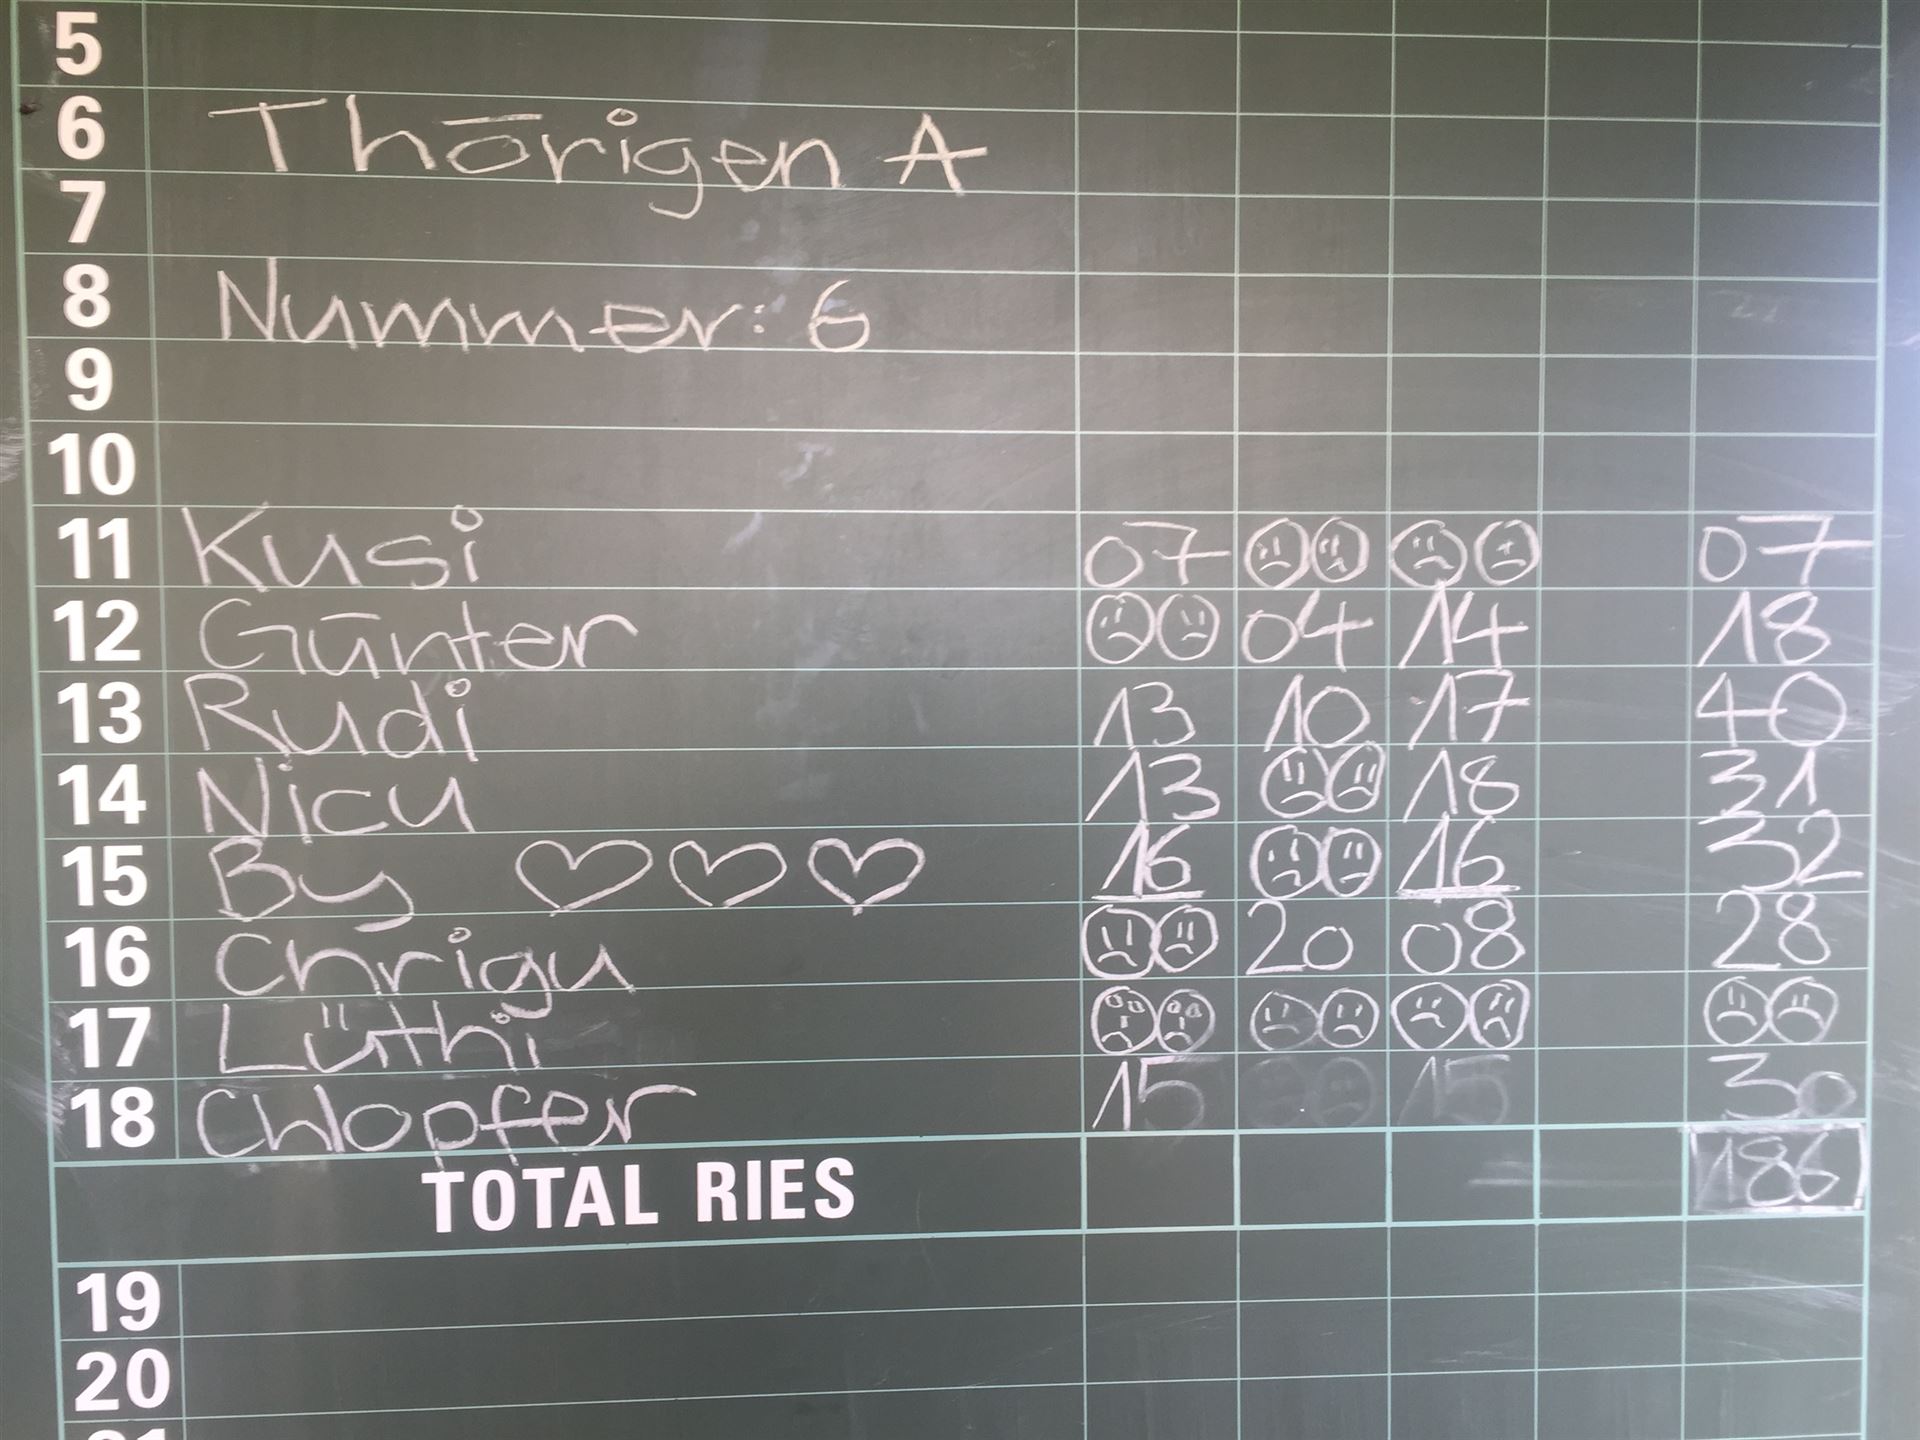 5
6 Thörigen A
7
8 Nummer: 6
9
10
11 Kusi 07 07
12 Günter 04 14 18
13 Rudi 13 10 17 40
14 Nicu 13 18 31
15 By 16 16 32
16 Chrigu 20 08 28
17 Lüthi
18 Chlopfer 15 15 30
TOTAL RIES 186
19
20
21